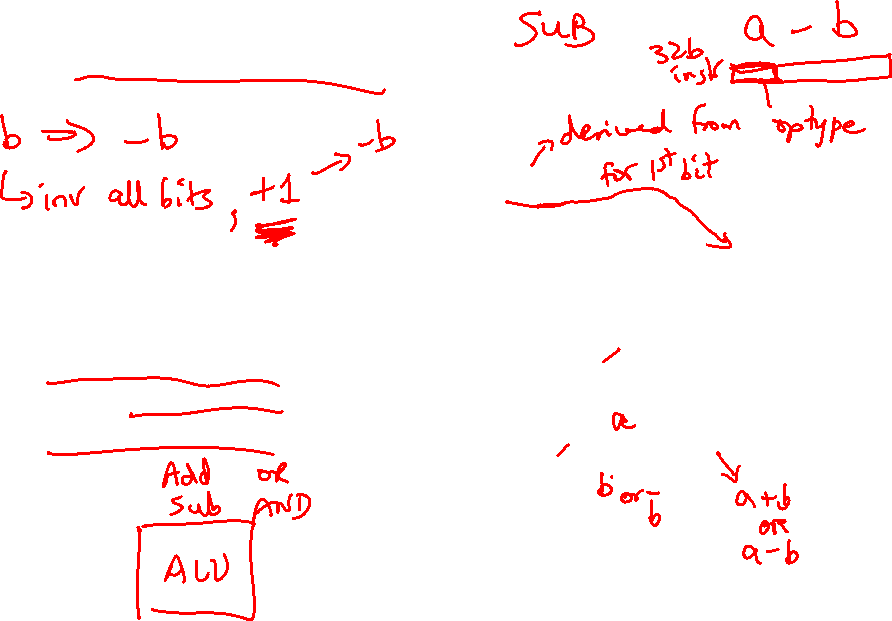 SUB a - b
32b
instr
b => -b
derived from optype
for 1st bit
↳ inv all bits, +1 → -b
a
Add OR
Sub AND
b or b̅
a+b
or
a-b
ALU